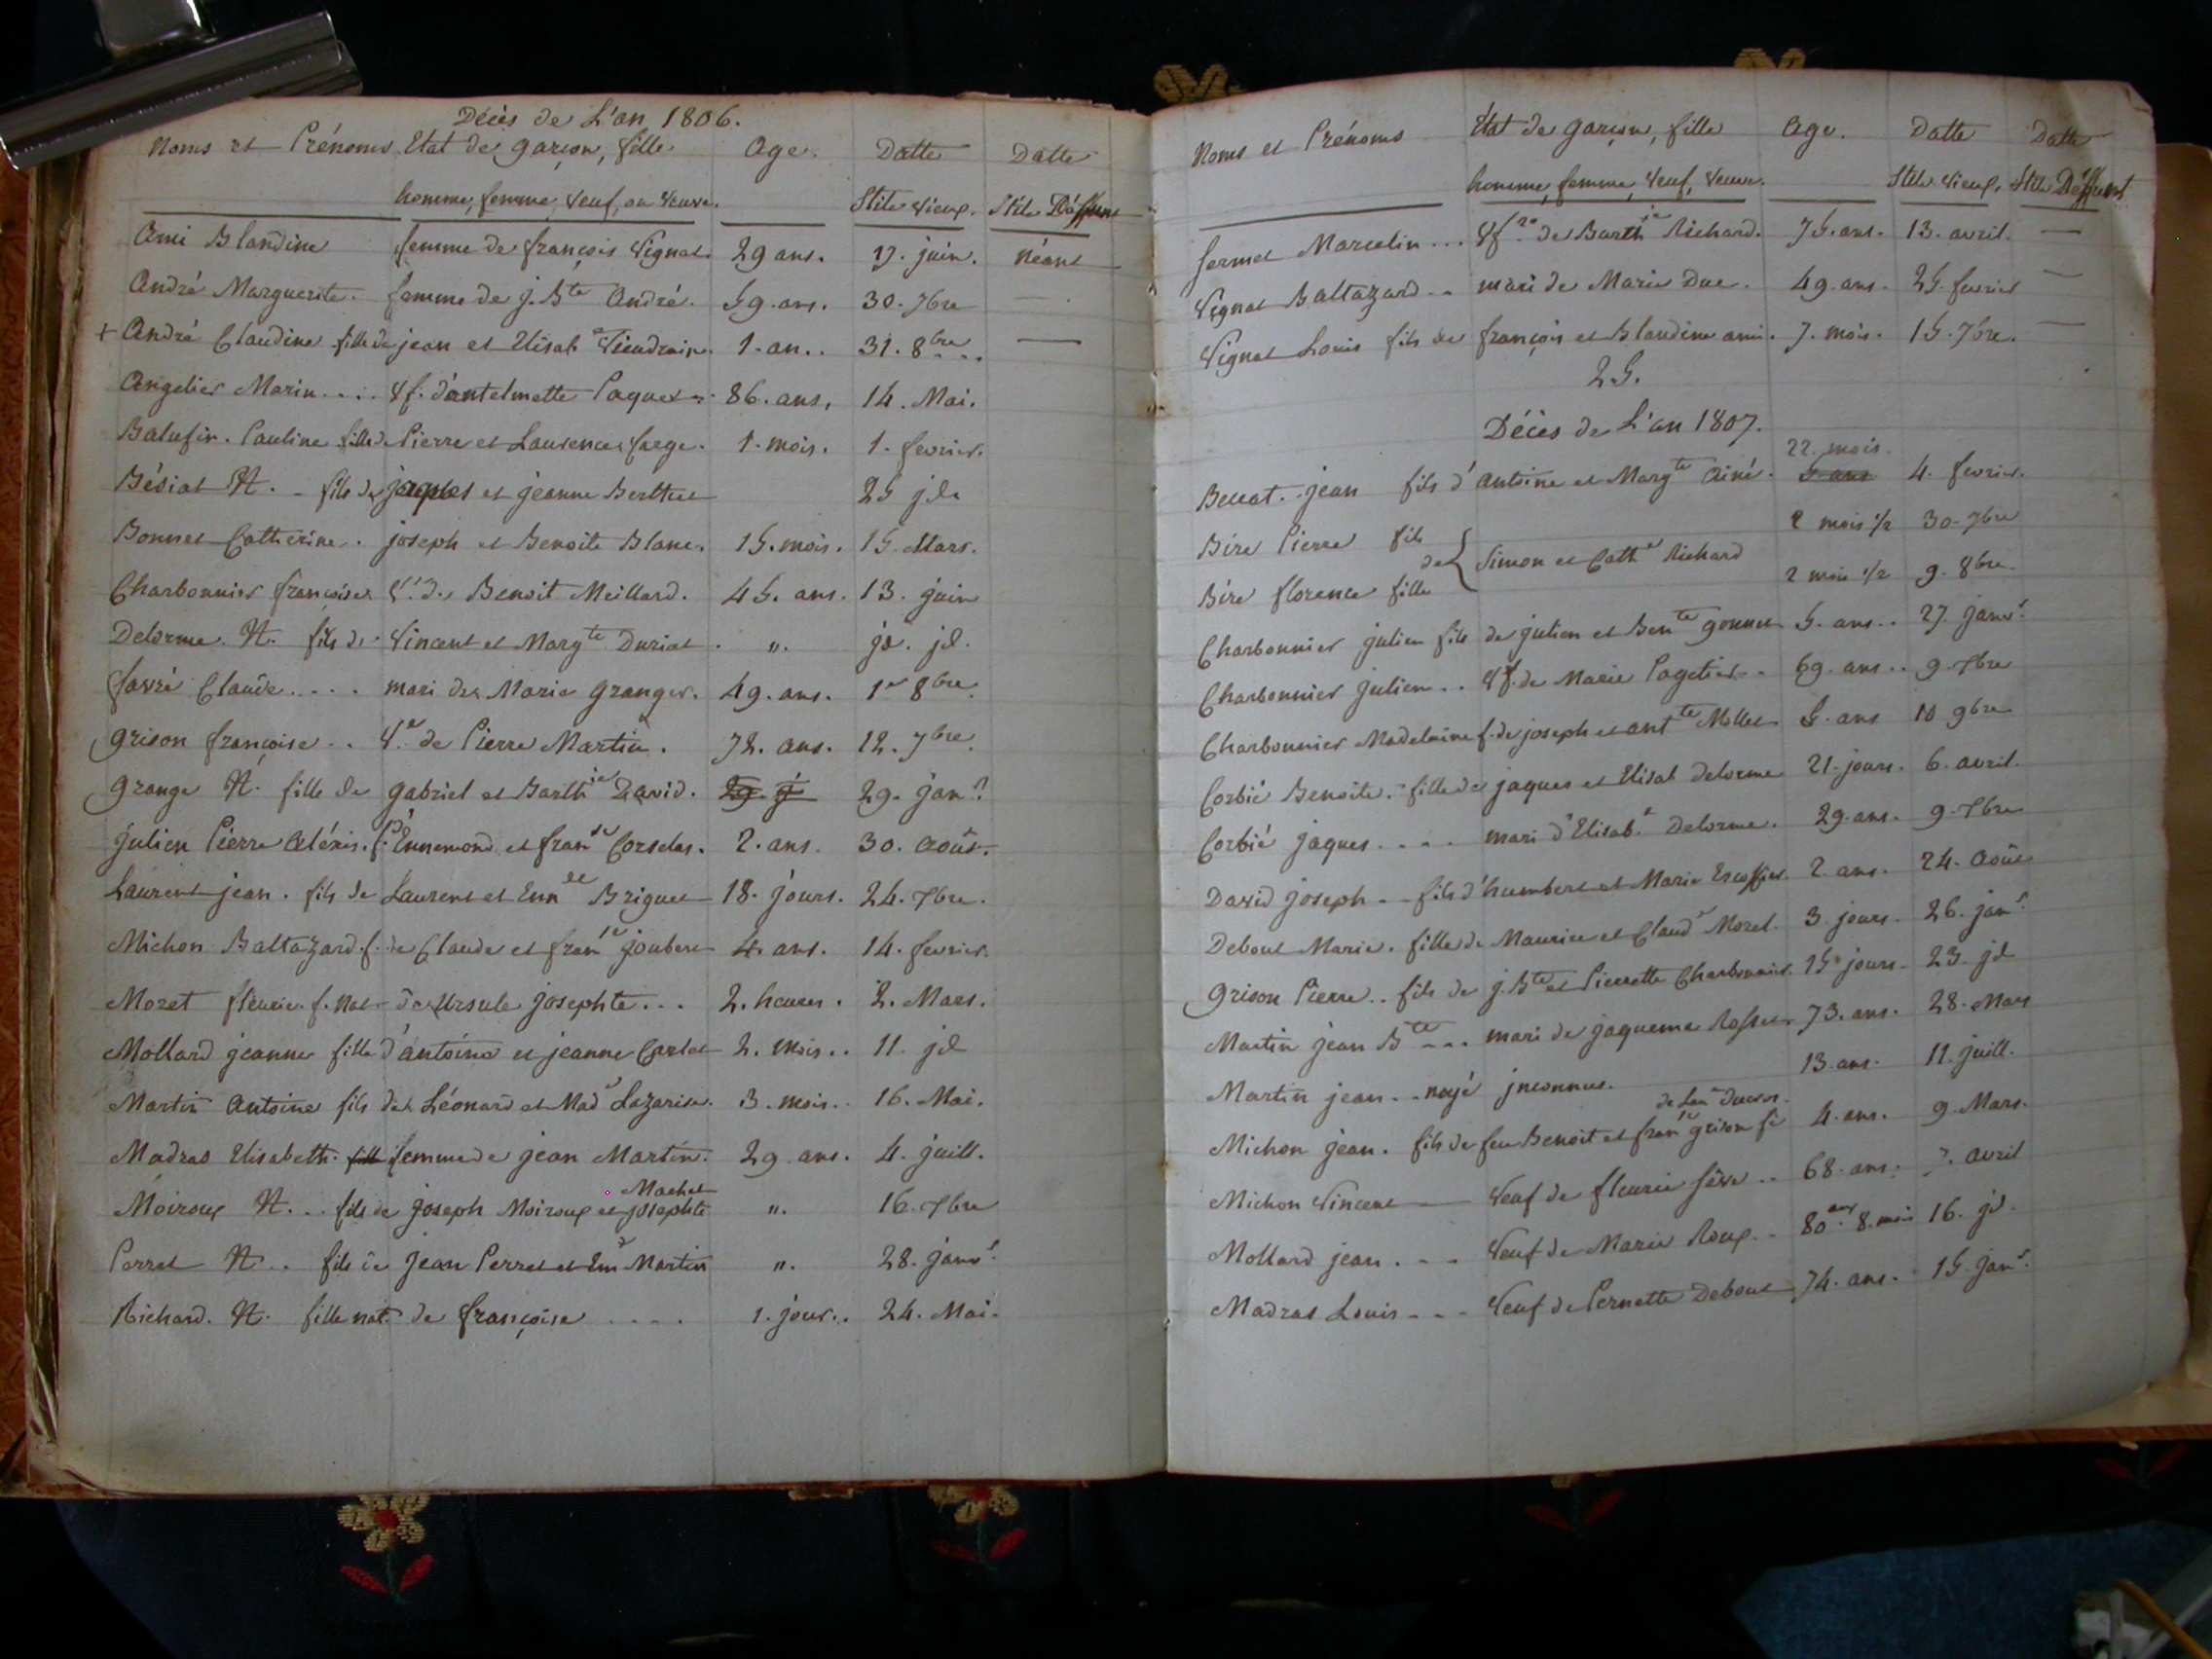 Décès de L'an 1806.
Noms et Prénoms Etat de garçon, fille Age. Datte Datte
homme, femme, Veuf, ou Veuve. Stile vieux. Stile
Ami Blandine femme de françois Vignat. 29 ans. 17. juin. néant
André Marguerite. femme de j. Bte André. 59. ans. 30. 7bre —
+ André Claudine fille de jean et Elisab. 1. an.. 31. 8bre —
Angelier Marin.... Vf. d'antelmette Paquet 86. ans, 14. Mai.
Balufin. Pauline fille de Pierre et Laurence farge. 1. mois. 1. fevrier.
Bésiat N. - fils de jaques et jeanne Berthet 25 jdo
Bonnet Catherine. joseph et Benoite Blanc. 15. mois. 15. Mars.
Charbonnier françoise Ve. de Benoit Meillard. 45. ans. 13. juin
Delorme. N. fils de Vincent et Margte Duriat. ". jd. jd.
favré Claude.... mari de Marie granger. 49. ans. 1er 8bre.
grison françoise.. Ve. de Pierre Martin. 72. ans. 12. 7bre.
grange N. fille de gabriel et Barthie David. 29. j 29. janr.
julien Pierre Aléxis. f. d'Ennemond et franse Corselas. 2. ans. 30. Août.
Laurent jean. fils de Laurent et Ennde Briguet 18. jours. 24. 7bre.
Michon Baltazard. f. de Claude et franse joubert 4. ans. 14. fevrier.
Mozet fleurie. f. nat. de Ursule josephte... 2. heures. 2. Mars.
Mollard jeanne fille d'antoine et jeanne Carlet 2. mois.. 11. jd
Martin Antoine fils de Léonard et Made Lazarise. 3. mois.. 16. Mai.
Madras Elisabeth. fille femme de jean Martin. 29. ans. 4. juill.
Machet
Moiroux N... fils de joseph Moiroux et josephte ". 16. 7bre
Perret N.. fils de jean Perret et Eme Martin ". 28. janvr.
Richard. N. fille nat. de françoise .... 1. jour.. 24. Mai.
Noms et Prénoms Etat de garçon, fille Age. Datte Datte
homme, femme, Veuf, Veuve. Stile vieux, Stile
fermet Marcelin... Vf. de Barthie Richard. 75. ans. 13. avril. —
Vignat Baltazard.. mari de Marie Duc. 49. ans. 25. fevrier —
Vignat Louis fils de françois et Blandine ami. 7. mois. 15. 7bre. —
25.
Décès de L'an 1807.
22. mois.
Beccat.. jean fils d'antoine et Margte Ainé. 5 ans 4. fevrier.
Bire Pierre fils 2 mois 1/2 30. 7bre
de { Simon et Cathe Richard
Bire florence fille 2 mois 1/2 9. 8bre.
Charbonnier julien fils de julien et Bente gonnet 5. ans.. 27. janvr.
Charbonnier julien.. Vf. de Marie Pagetier.. 69. ans.. 9. 7bre
Charbonnier Madelaine f. de joseph et antte Mollet 5. ans 10 9bre
Corbié Benoite. fille de jaques et Elisab delorme 21. jours. 6. avril.
Corbié jaques.... mari d'Elisab.e Delorme. 29. ans. 9. 7bre
David joseph.. fils d'humbert et Marie Escoffier 2. ans. 24. Août
Debout Marie. fille de Maurice et Claude Mozet. 3. jours. 26. janr.
grison Pierre.. fils de j. Bte et Pierrette Charbonnier. 15 jours. 23. jd
Martin jean Bte... mari de jaqueme Rosset. 73. ans. 28. Mars
Martin jean.. noyé jnconnu. 13 ans. 11. juill.
Michon jean. fils de feu Benoit et franse grison 4. ans. 9. Mars.
Michon Vincent Veuf de fleurie fève.. 68. ans. 7. avril
Mollard jean... Veuf de Marie Roux.. 80 ans. 8. mois 16. jd.
Madras Louis... Veuf de Pernette Debout 74. ans. 15. janr.